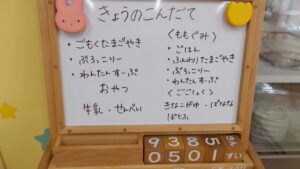 きょうのこんだて
・ごもくたまごやき
・ぶろっこりー
・わんたんすーぷ
おやつ
牛乳・せんべい
くももぐみ〉
・ごはん
・ふんわりたまごやき
・ぶろっこりー
・わんたんすーぷ
〈ごごしょく〉
きなこがゆ・ばなな
ぽとふ
9385
0501